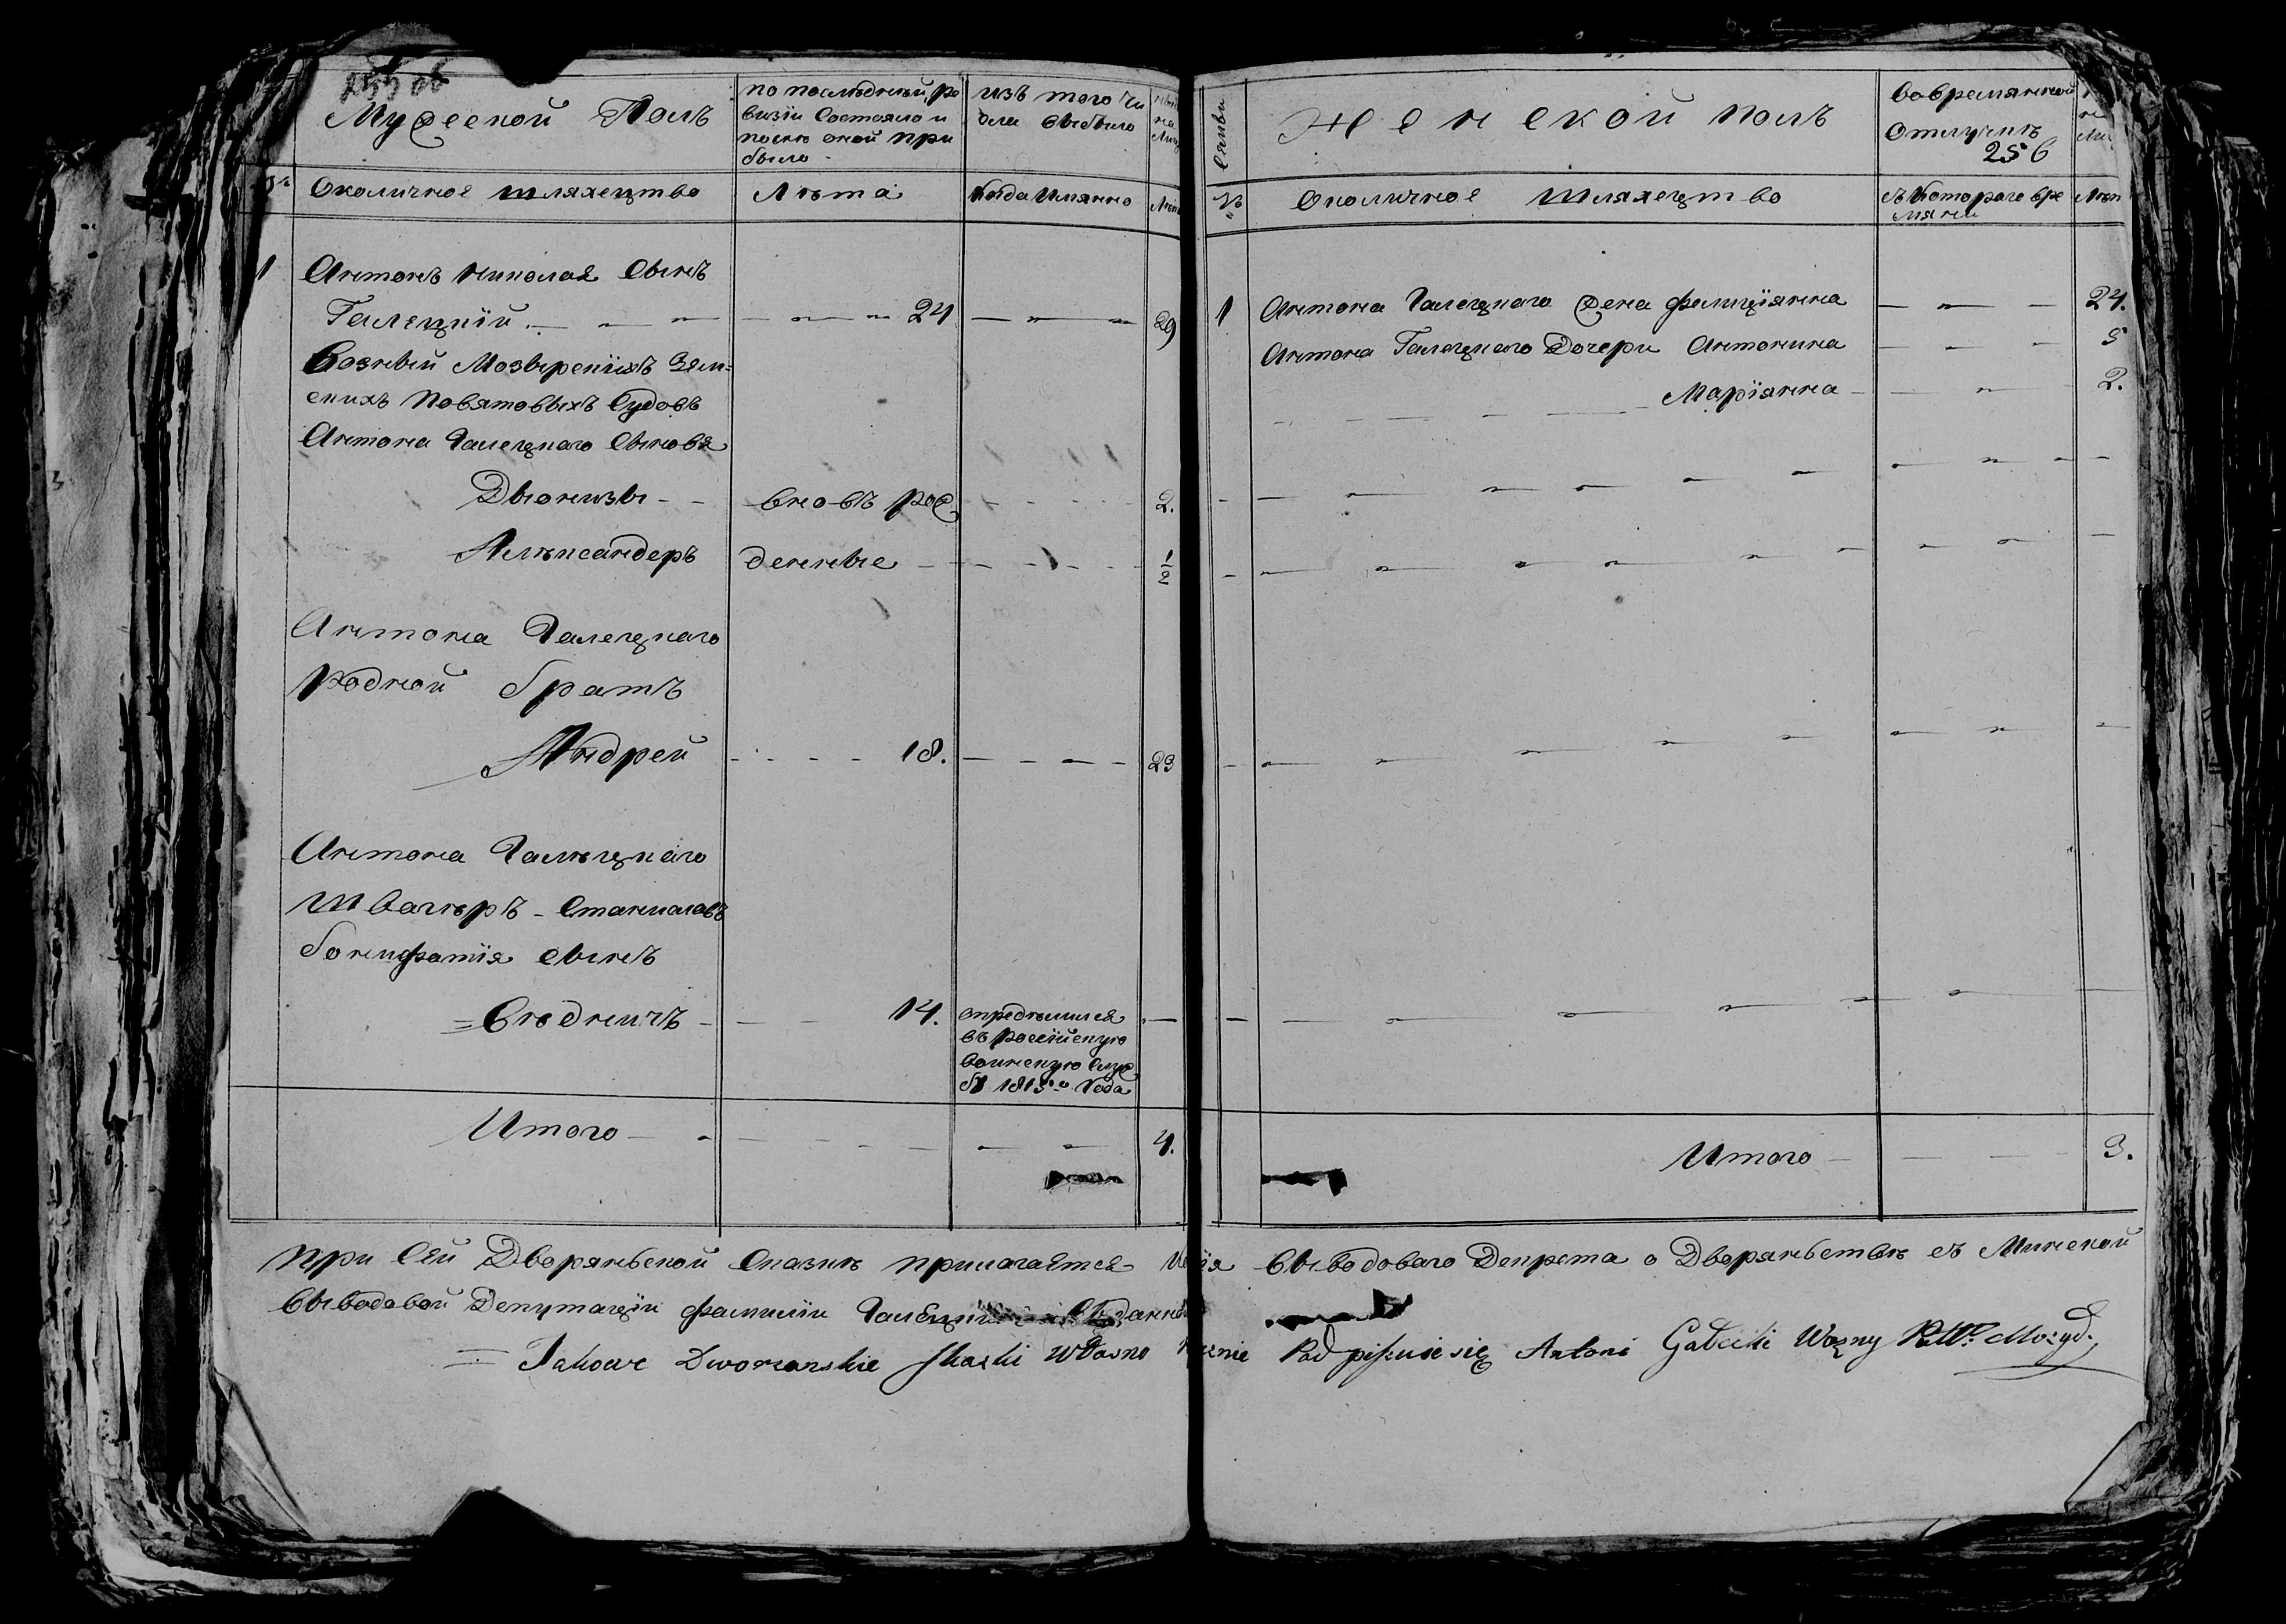 Мужеской Полъ
по последней ре
визіи Состояло и
после оной при
было
изъ того чи
сла выбыло
Околичное шляхецтво
Лѣта
Когда имянно
1 Антонъ Николая Сынъ
Галецкій 24 29
Возный Мозырскихъ Зем=
скихъ Повятовыхъ Судовъ
Антона Галецкаго Сыновя
Дыонизы вновъ рож 2.
Алѣксандеръ денные 1/2
Антона Галецкаго
родной братъ
Андрей 18. 23
Антона Галѣцкаго
Швагѣръ Станиславъ
бонифатія сынъ
=Вѣдничъ 14. опредѣлился
въ россійскую
воинскую служ
бу 1813го Года
Итого 4.
Женской полъ
Вовремянной
Отлучкѣ
256
Семьи
№ Околичное Шляхецтво
съ Котораго вре
мяни
1 Антона Галецкаго Жена Фелиціянна 24.
Антона Галецкаго Дочери Антонина 5
Маріянна 2.
Итого 3.
При Сей Дворяньской Сказкѣ прилагаѣтся Копія Выводоваго Декрета о Дворяньствѣ съ Минской
Выводовой Депутаціи фамиліи Галецкихъ выданной
= Jakowe Dworanskie skazki własno ręcznie Pod pisuie się Antoni Galecki Wozny P. W. Mozyd.